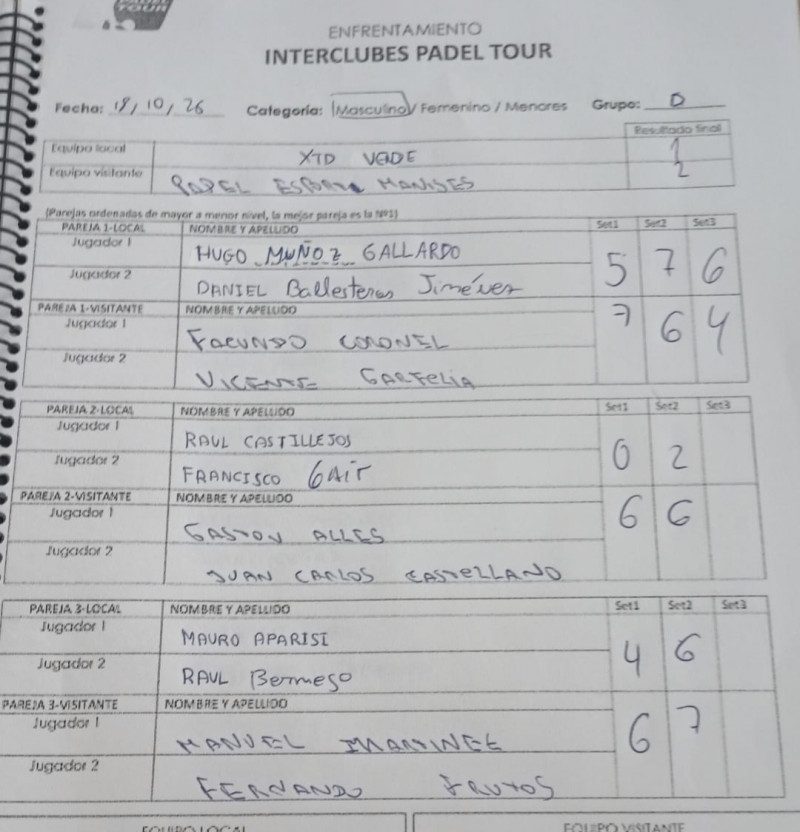 TOUR
ENFRENTAMIENTO
INTERCLUBES PADEL TOUR
Fecha: 18/10/26 Categoría: Masculino/ Femenino / Menores Grupo: D
Resultado final
Equipo local XTD VERDE 1
Equipo visitante PADEL ESPORTA MANISES 2
(Parejas ordenadas de mayor a menor nivel, la mejor pareja es la Nº1)
PAREJA 1-LOCAL NOMBRE Y APELLIDO Set1 Set2 Set3
Jugador 1 HUGO MUÑOZ GALLARDO
Jugador 2 DANIEL Ballesteros Jiménez 5 7 6
PAREJA 1-VISITANTE NOMBRE Y APELLIDO
Jugador 1 FACUNDO CORONEL 7 6 4
Jugador 2 VICENTE
PAREJA 2-LOCAL NOMBRE Y APELLIDO Set1 Set2 Set3
Jugador 1 RAUL CASTILLEJOS
Jugador 2 FRANCISCO 0 2
PAREJA 2-VISITANTE NOMBRE Y APELLIDO
Jugador 1 GASTON ALLES 6 6
Jugador 2 JUAN CARLOS CASTELLANO
PAREJA 3-LOCAL NOMBRE Y APELLIDO Set1 Set2 Set3
Jugador 1 MAURO APARISI
Jugador 2 RAUL Bermejo 4 6
PAREJA 3-VISITANTE NOMBRE Y APELLIDO
Jugador 1 MANUEL MARTINEZ 6 7
Jugador 2 FERNANDO FRUTOS
EQUIPO LOCAL EQUIPO VISITANTE